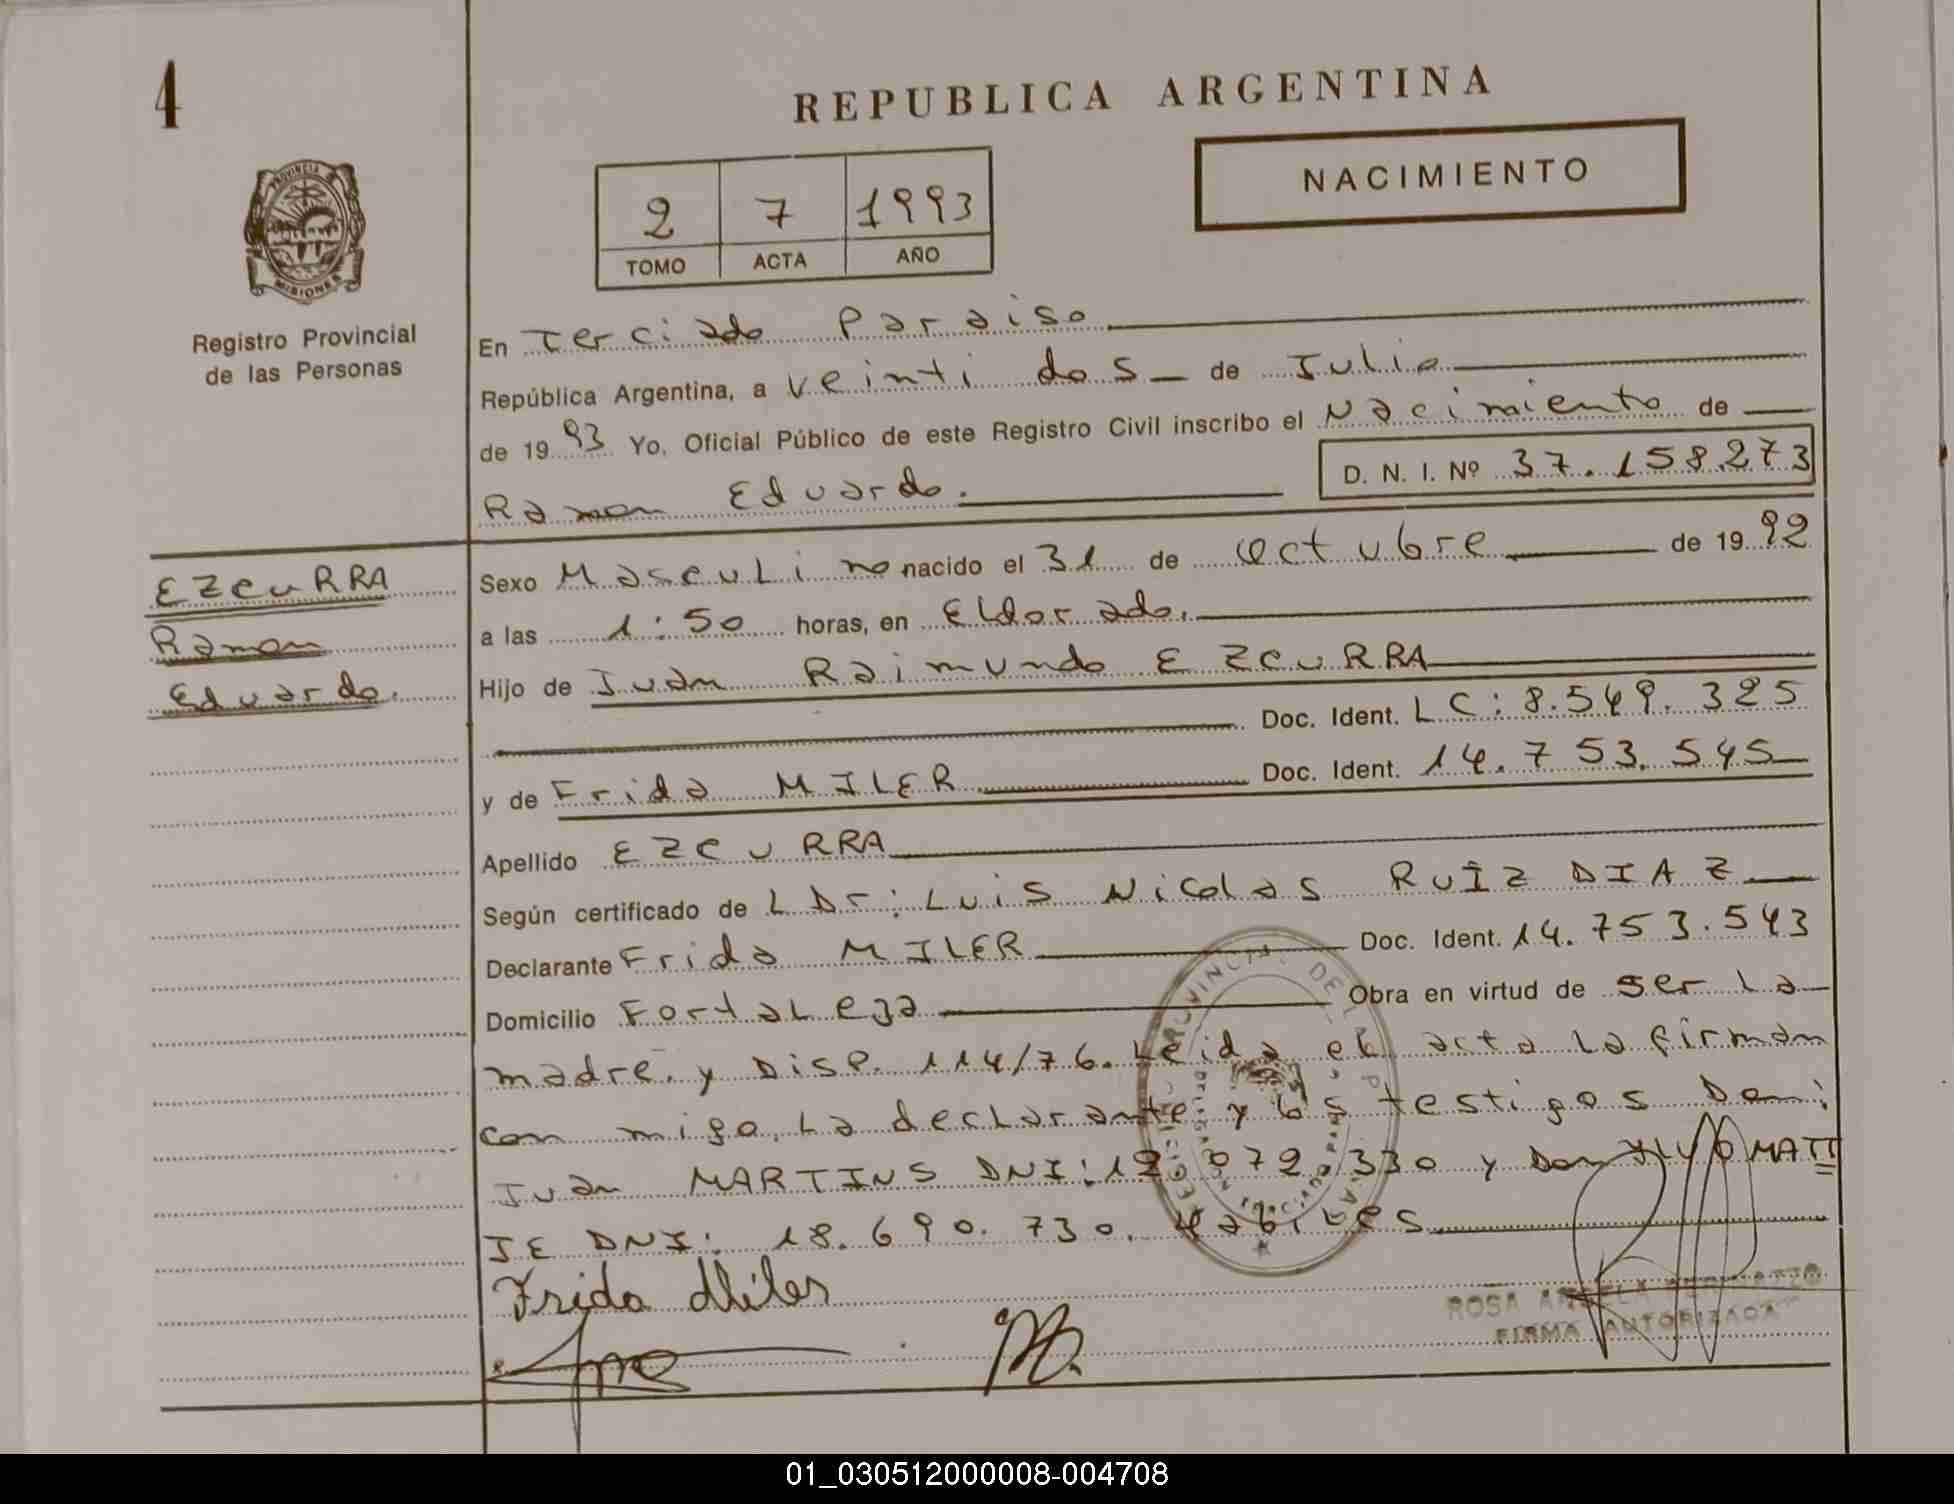 4
REPUBLICA ARGENTINA
NACIMIENTO
2 7 1993
TOMO ACTA AÑO
PROVINCIA DE
MISIONES
Registro Provincial
de las Personas
En Terciado Paraiso
República Argentina, a veinti dos de Julio
de 1993 Yo, Oficial Público de este Registro Civil inscribo el Nacimiento de
Ramon Eduardo. D. N. I. Nº 37.158.273
EZCURRA
Ramon
Eduardo.
Sexo Masculino nacido el 31 de Octubre de 1992
a las 1:50 horas, en Eldorado.
Hijo de Juan Raimundo EZCURRA
Doc. Ident. LC: 8.549.325
y de Frida MILER Doc. Ident. 14.753.545
Apellido EZCURRA
Según certificado de L Dr: Luis Nicolas RUIZ DIAZ
Declarante Frida MILER Doc. Ident. 14.753.543
Domicilio Fortaleza Obra en virtud de ser la
madre. y Disp. 114/76. Leida el acta la firman
con migo, La declarante y los testigos Don:
Juan MARTINS DNI: 12.072.330 y Don MATT
JE DNI: 18.690.730. Habiles
Frida Miler
ROSA
FIRMA AUTORIZADA
01_030512000008-004708